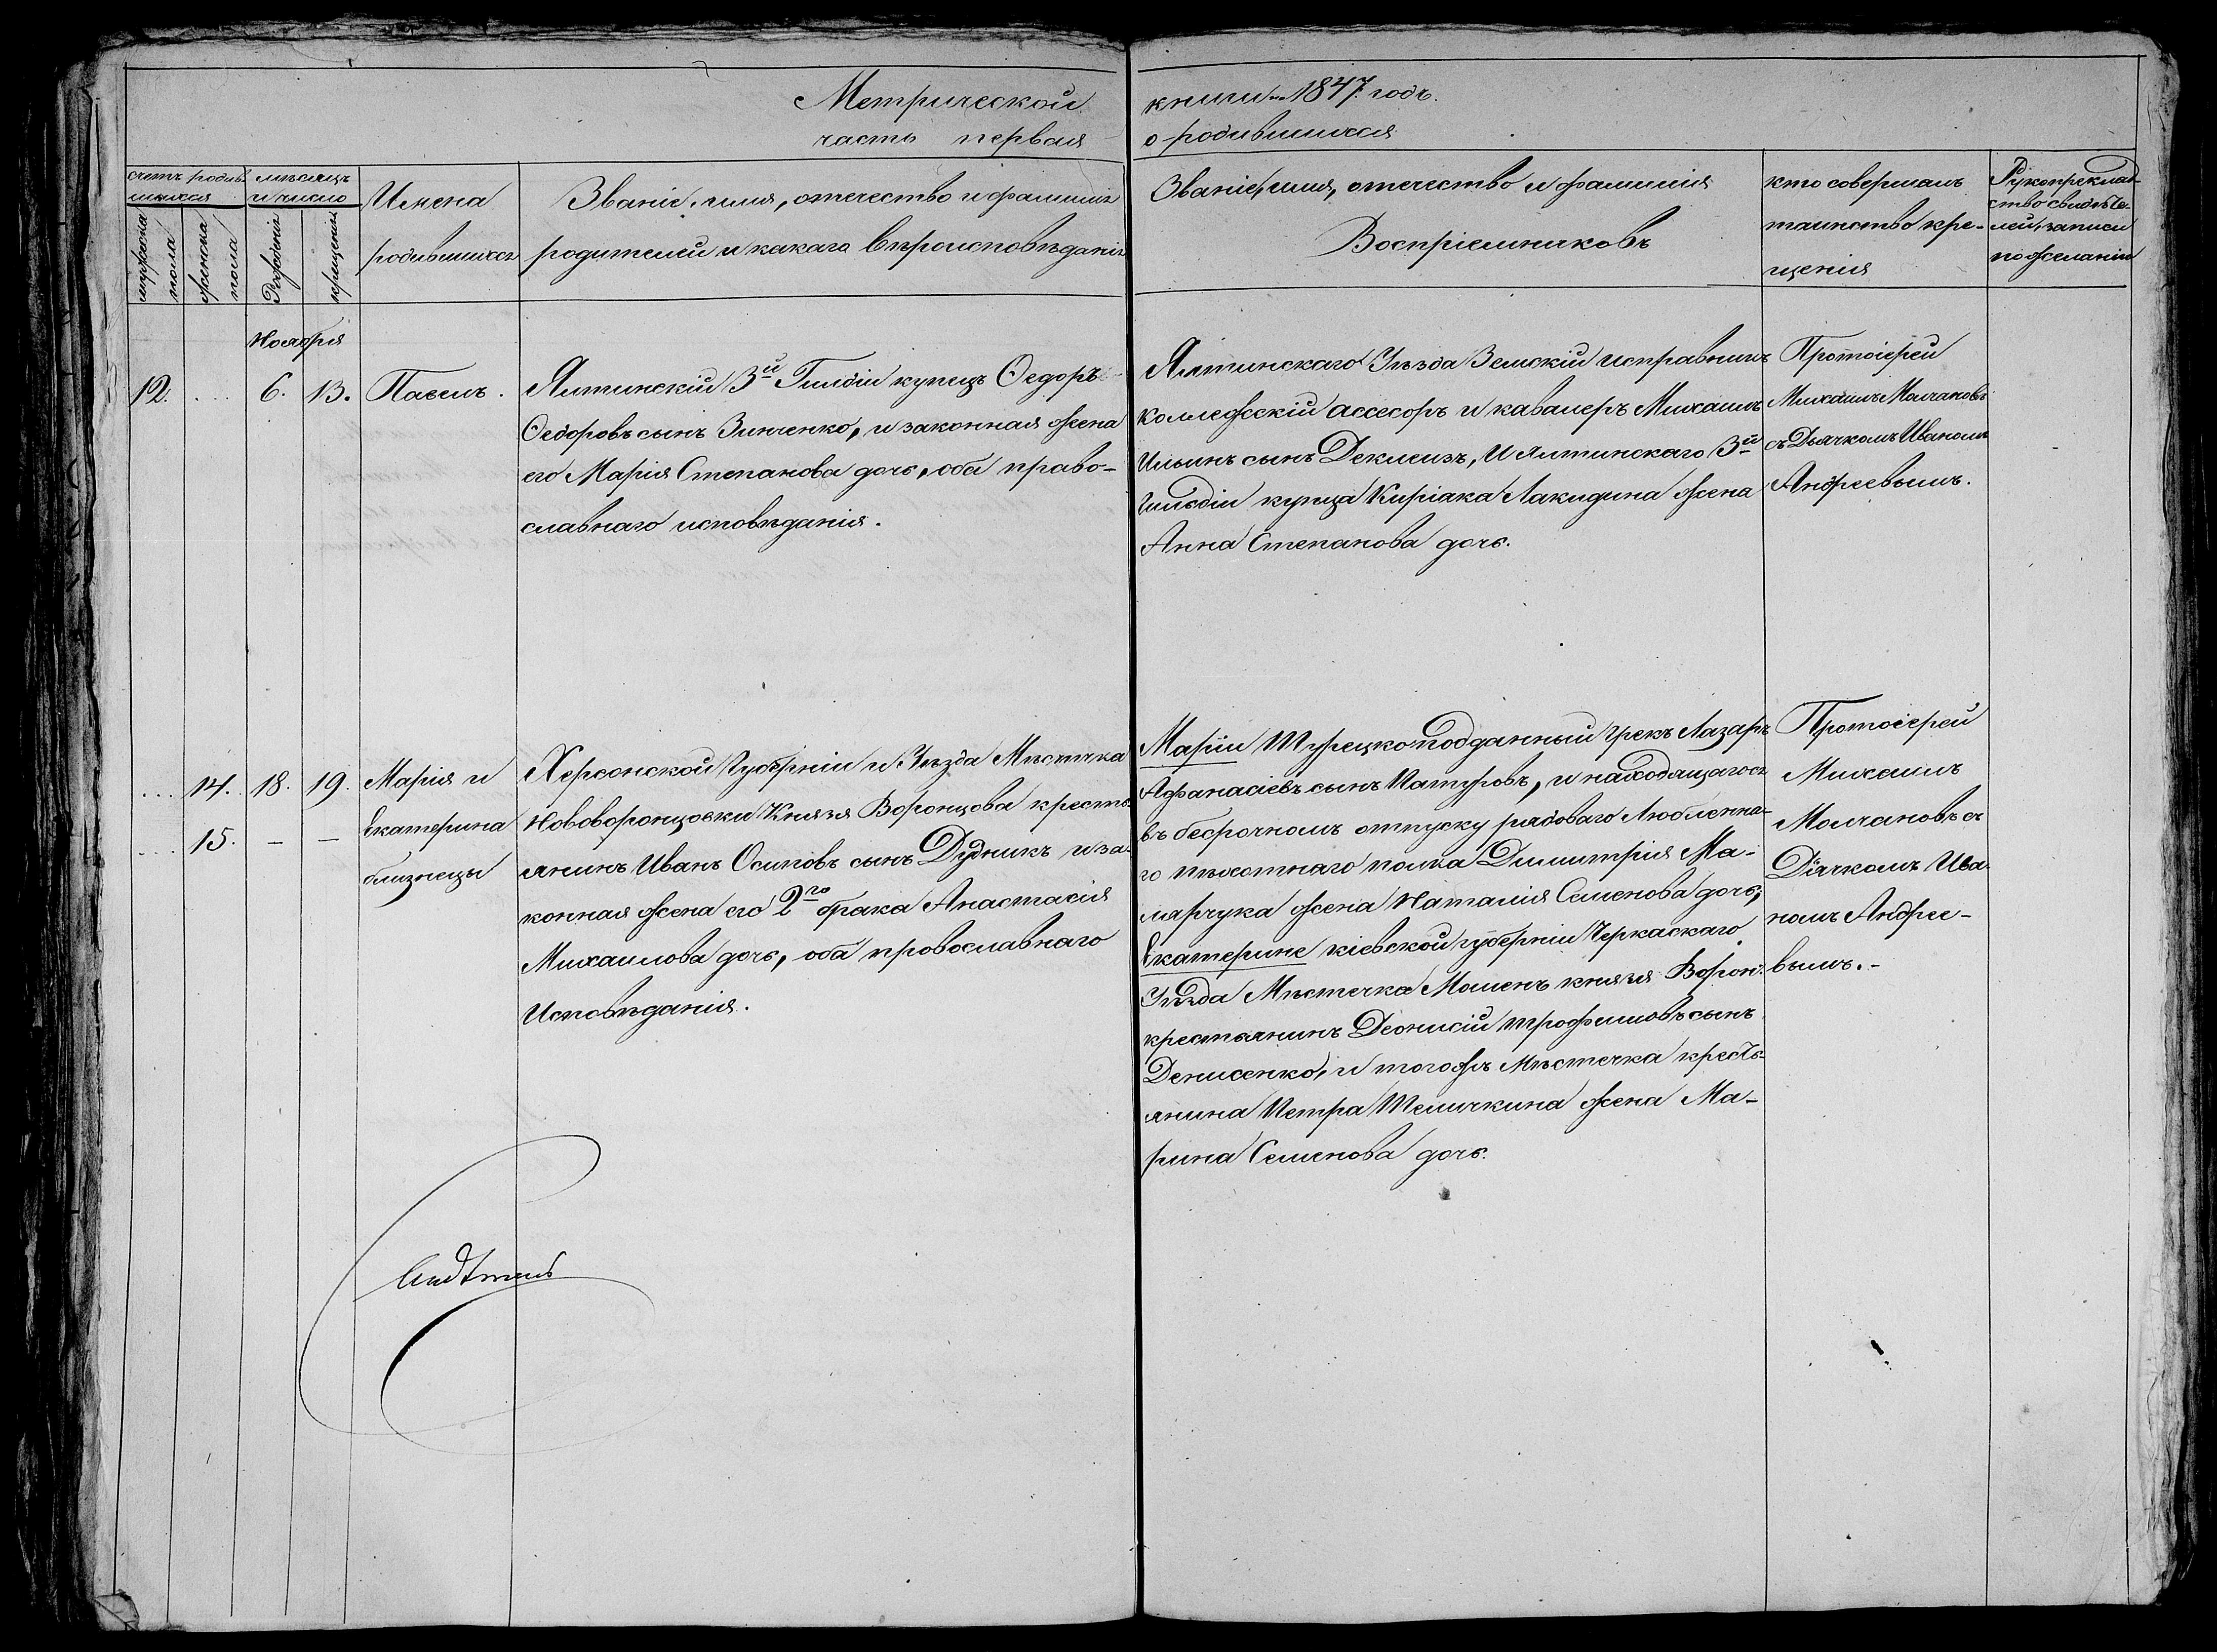 Метрической
часть первая
книги на 1847 годъ.
о родившихся
счетъ родив-
шихся
мужска
пола
женска
пола
мѣсяцъ
и число
Рожденія
крещенія
Имена
родившихся
Званіе, имя, отечество и фамилія
родителей и какаго вѣроисповѣданія
Званіе, имя, отечество и фамилія
Воспріемниковъ
кто совершалъ
таинство кре-
щенія
Рукоприклад-
ство свидѣте-
лей, записи
по желанію
Ноября
12. ... 6. 13. Павелъ.
Ялтинскій 3й Гилдіи купецъ Ѳедоръ
Ѳедоровъ сынъ Зинченко, и законная жена
его Марія Степанова дочь, оба право-
славнаго исповѣданія.
Ялтинскаго Уѣзда Земскій исправникъ
коллежскій ассесоръ и кавалеръ Михаилъ
Ильинъ сынъ, И Ялтинскаго 3й
гильдіи купца Киріака Лакидина жена
Анна Степанова дочь.
Протоіерей
Михаилъ Молчановъ
съ Дьячкомъ Иваномъ
Андреевымъ.
... 14. 18. 19. Марія и
... 15. – – Екатерина
близнецы
Херсонской Губерніи и Уѣзда Мѣстечка
Нововоронцовки Князя Воронцова кресть-
янинъ Иванъ Осиповъ сынъ Дудникъ и за-
конная жена его 2го брака Анастасія
Михаилова дочь, оба провославнаго
Исповѣданія.
Маріи Турецкоподданный Грекъ Лазарь
Афанасіевъ сынъ, и находящагося
въ бесрочномъ отпуску рядоваго Люблинка-
го пѣхотнаго полка Димитрія Ма-
марчука жена Наталія Семенова дочь,
Екатерине кіевской губерніи Черкаскаго
Уѣзда Мѣстечка Мошенъ князя Ворон:
крестьянинъ Деонисій трофимовъ сынъ
Денисенко, и тогожъ Мѣстечка кресть-
янина Петра жена Ма-
рина Семенова дочь.
Протоіерей
Михаилъ
Молчановъ съ
Дїячкомъ Ива-
номъ Андрее-
вымъ.-